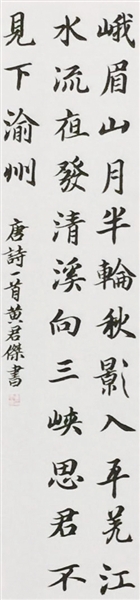 峨眉山月半輪秋影入平羌江
水流夜發清溪向三峽思君不
見下渝州
唐詩一首黃君傑書